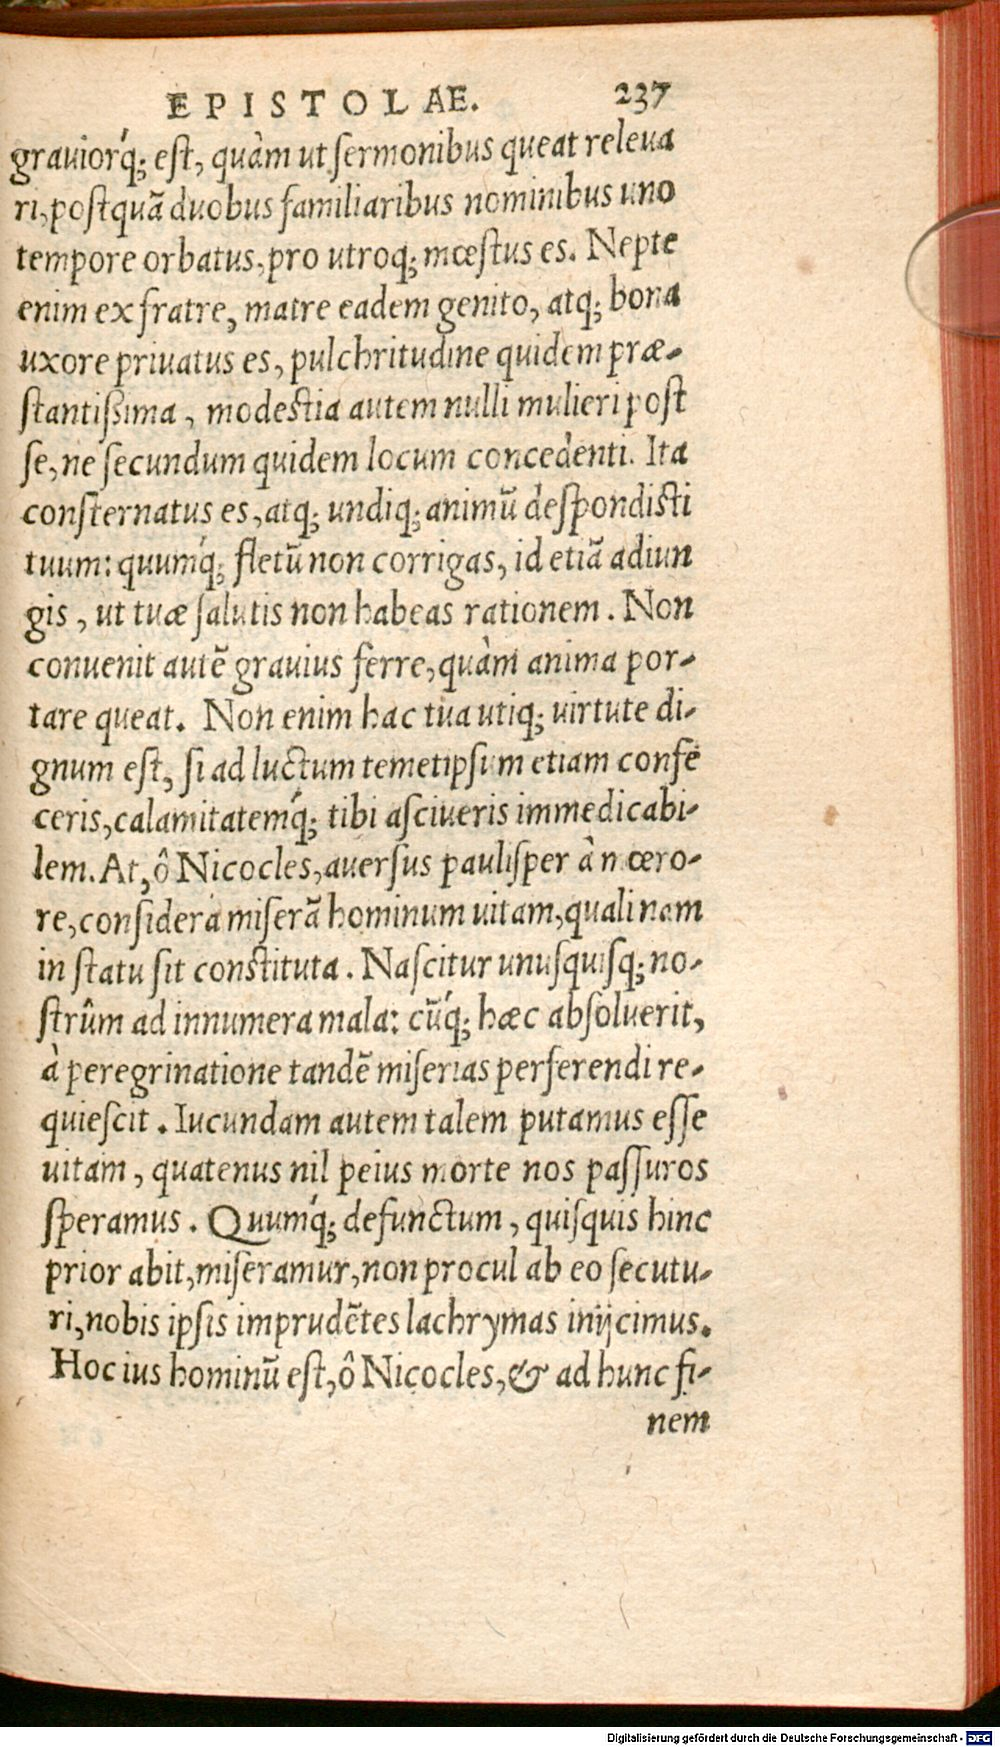 EPISTOLAE. 237
grauiorq́; est, quàm ut sermonibus queat releua
ri, postquā duobus familiaribus nominibus uno
tempore orbatus, pro utroq; mœstus es. Nepte
enim ex fratre, matre eadem genito, atq; bona
uxore priuatus es, pulchritudine quidem præ-
stantißima, modestia autem nulli mulieri post
se, ne secundum quidem locum concedenti. Ita
consternatus es, atq; undiq; animū despondisti
tuum: quumq́; fletū non corrigas, id etiā adiun
gis, ut tuæ salutis non habeas rationem. Non
conuenit autē grauius ferre, quàm anima por-
tare queat. Non enim hac tua utiq; uirtute di-
gnum est, si ad luctum temetipsum etiam confe
ceris, calamitatemq́; tibi asciueris immedicabi-
lem. At, ô Nicocles, auersus paulisper à mœro-
re, considera miserā hominum uitam, qualinam
in statu sit constituta. Nascitur unusquisq; no-
strûm ad innumera mala: cūq́; hæc absoluerit,
à peregrinatione tandē miserias perferendi re-
quiescit. Iucundam autem talem putamus esse
uitam, quatenus nil peius morte nos passuros
speramus. Quumq́; defunctum, quisquis hinc
prior abit, miseramur, non procul ab eo secutu-
ri, nobis ipsis imprudētes lachrymas inijcimus.
Hoc ius hominū est, ô Nicocles, & ad hunc fi-
nem
Digitalisierung gefördert durch die Deutsche Forschungsgemeinschaft - DFG